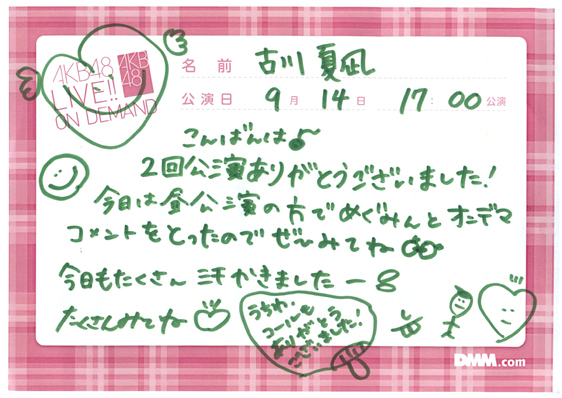 AKB48
LIVE!!
ON DEMAND
AKB
48
名前 古川 夏凪
公演日 9月 14日 17:00公演
こんばんは♪
2回公演ありがとうございました!
今日は昼公演の方でめぐみんとオンデマ
コメントをとったのでぜひみてね
今日もたくさん汗かきましたー
たくさんみてね
うちわ・
コールも
ありがとう
ございました!
DMM.com